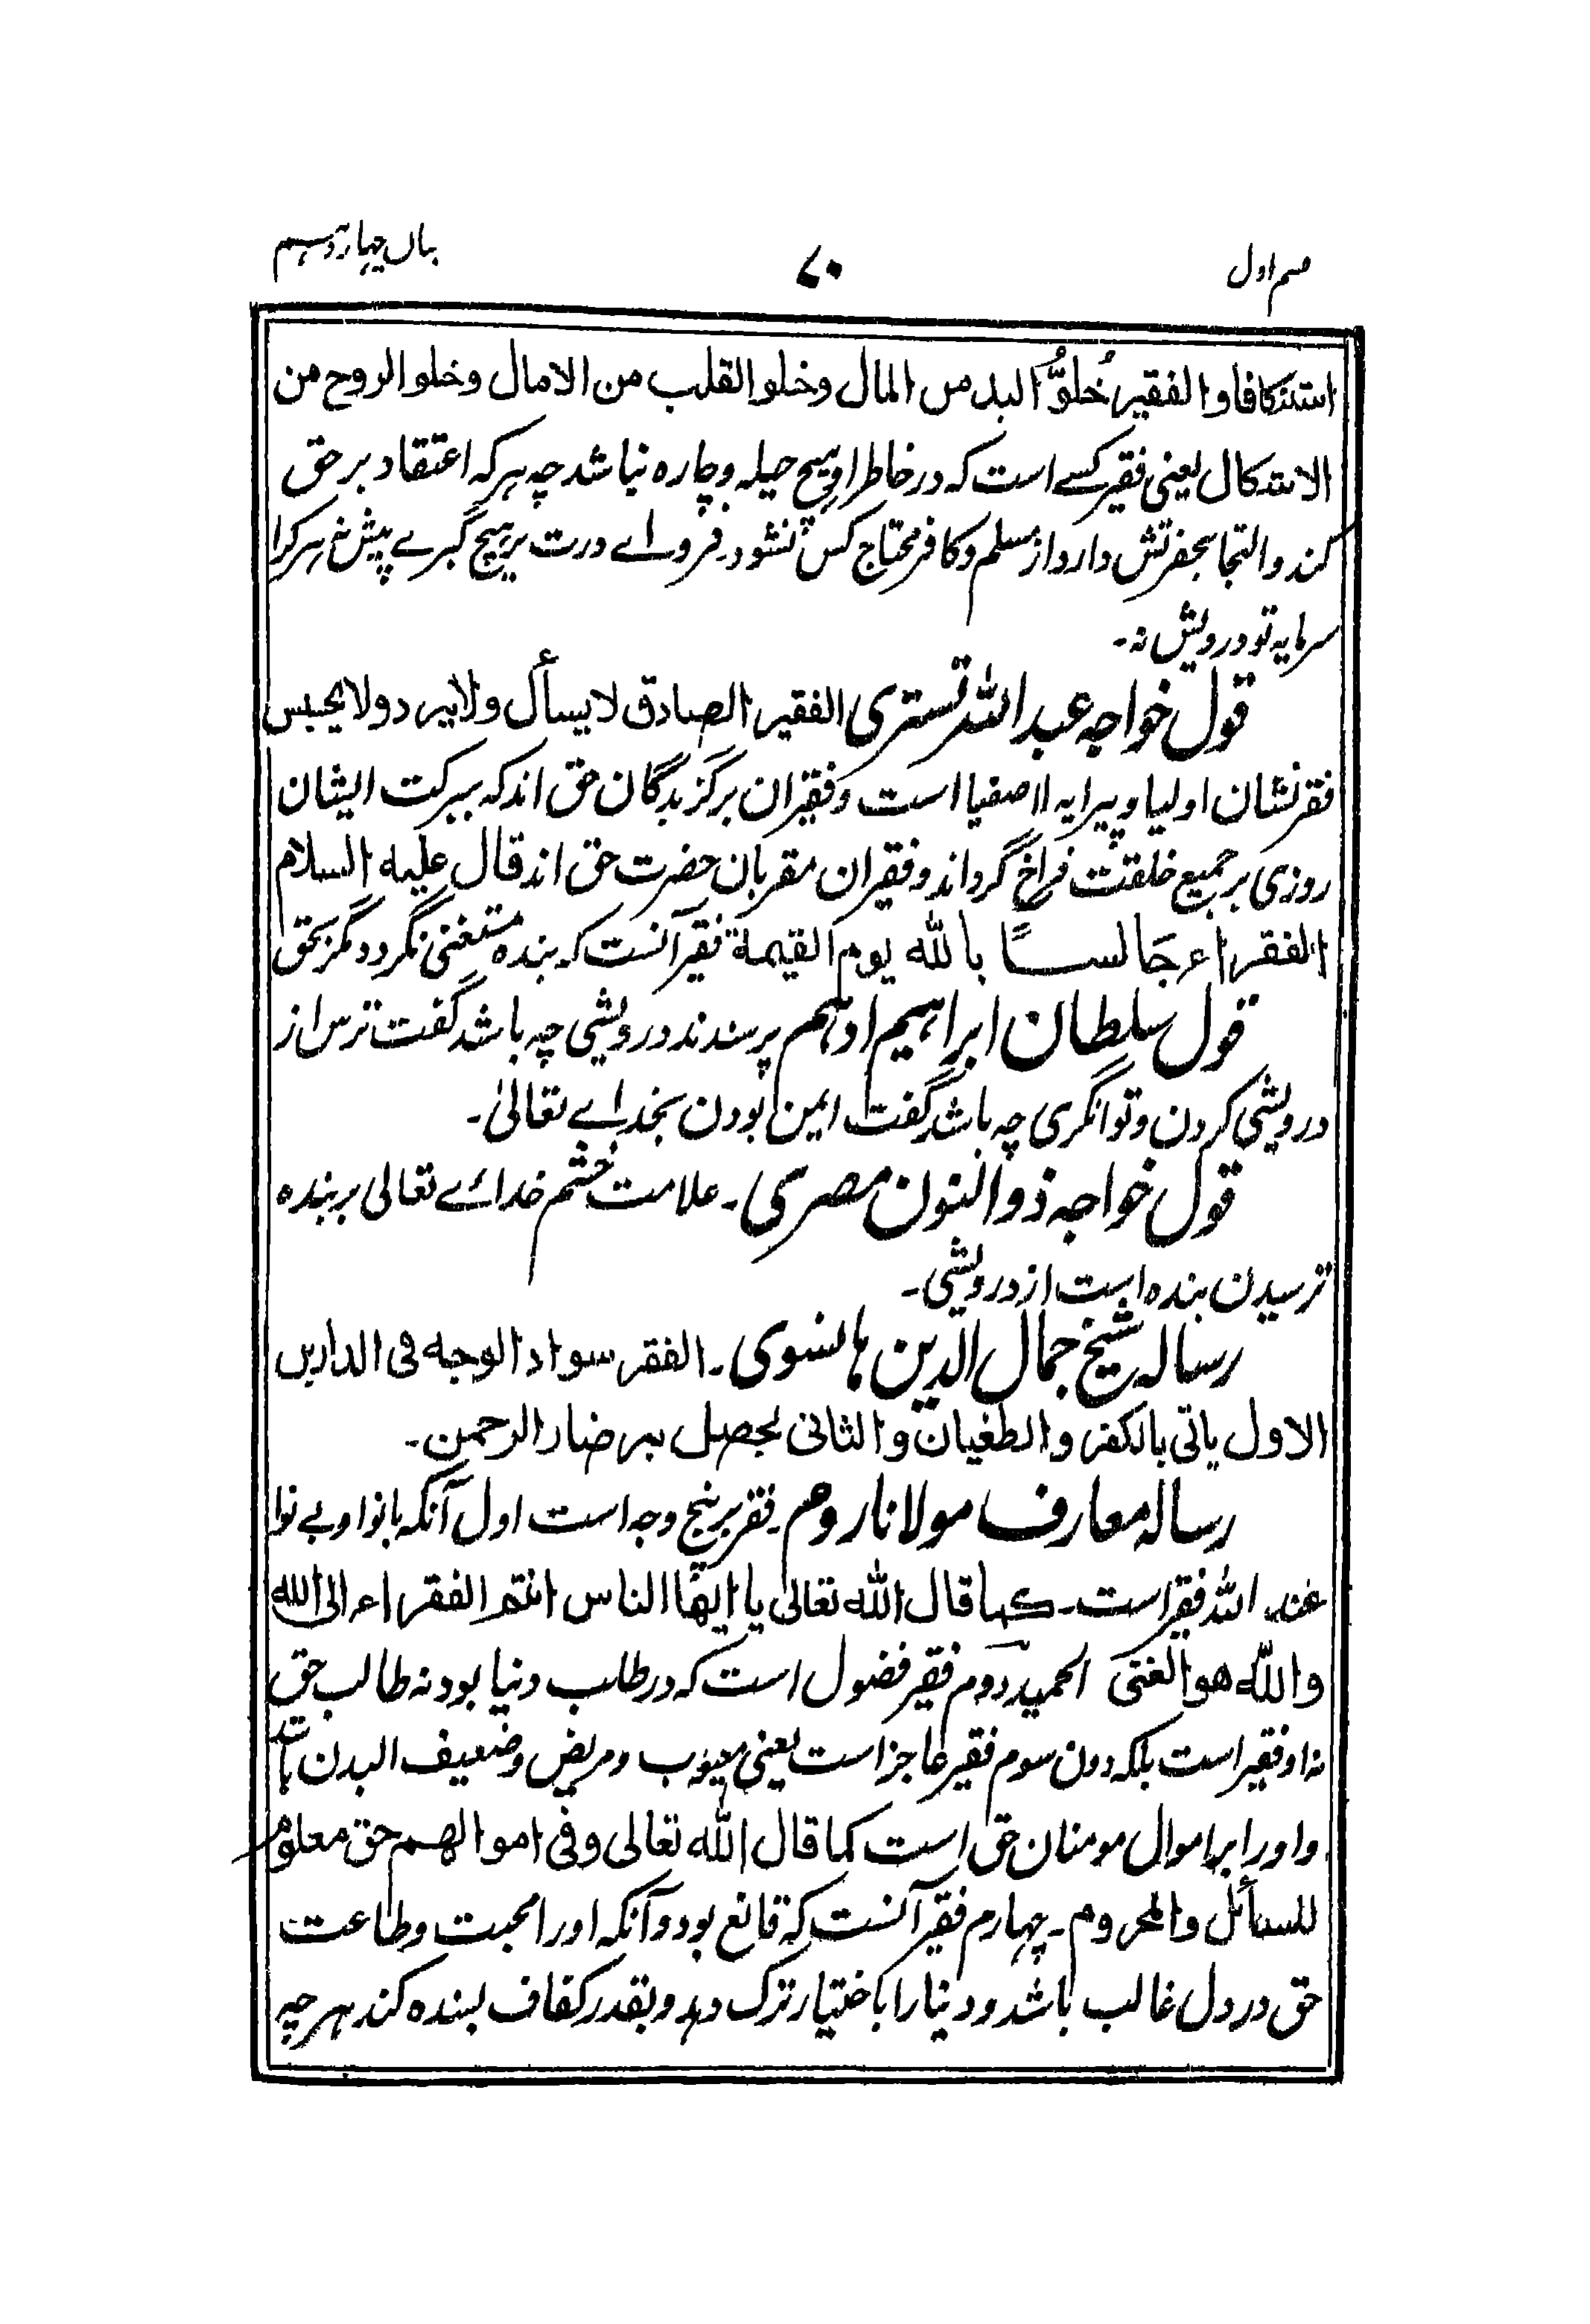 قسم اول ۷۰ بیان چہاردہم
استنکافا و الفقیر خُلوُّ الید من المال وخلو القلب من الامال وخلو الروح من
الاتکال یعنی فقیر کسے است کہ در خاطر او ہیچ حیلہ و چارہ نباشد چہ ہر کہ اعتقاد بر حق
کند و التجا بحضرتش دارد از مسلم و کافر محتاج کس نشود۔ فرو اے درت ہیچ گبرے پیش ہر کرا
سرمایہ تو درویش نہ۔
قول خواجہ عبداللہ تستری الفقیر الصادق لا یسأل ولا یرد ولا یحبس
فقر نشان اولیا و پیرایہ اصفیا است و فقیران برگزیدگان حق اند کہ ببرکت ایشان
روزی بر جمیع خلقت فراخ گرداند و فقیران مقربان حضرت حق اند قال علیہ السلام
الفقراء جَالسًا باللہ یوم القیمۃ فقیر آنست کہ بندہ مستغنی نگردد مگر بحق
قول سلطان ابراہیم ادہم پرسندند درویشی چہ باشد گفت ترس از
درویشی کردن و توانگری چہ باشد گفت ایمن بودن بخداے تعالیٰ۔
قول خواجہ ذوالنون مصری۔ علامت خشم خدائے تعالی بر بندہ
ترسیدن بندہ است از درویشی۔
رسالہ شیخ جمال الدین ہانسوی۔ الفقر سواد الوجہ فی الدارین
الاول یاتی بالکفر و الطغیان و الثانی یحصل بہ رضار الرحمن۔
رسالہ معارف مولانا روم۔ فقر بر پنج وجہ است اول آنکہ بانوا و بے نوا
عند اللہ فقیر است۔ کما قال اللہ تعالیٰ یا ایھا الناس انتم الفقراء الی اللہ
واللہ ھو الغنی الحمید دوم فقیر فضول است کہ در طلب دنیا بود نہ طالب حق
نہ او فقیر است بلکہ دون سوم فقیر عاجز است یعنی معیوب و مریض و ضعیف البدن باشد
و اورا بر اموال مومنان حق است کما قال اللہ تعالی وفی اموالھم حق معلوم
للسائل والمحروم۔ چہارم فقیر آنست کہ قانع بود و آنکہ اورا محبت و طاعت
حق در دل غالب باشد و دنیا را باختیار ترک دہد و بقدر کفاف بسندہ کند ہر چہ